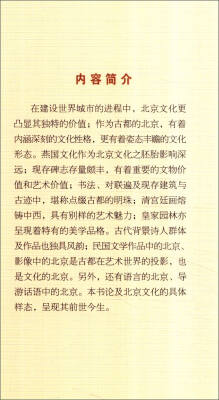 内容简介
在建设世界城市的进程中，北京文化更
凸显其独特的价值；作为古都的北京，有着
内涵深刻的文化性格，更有着姿态丰瞻的文化
形态。燕国文化作为北京文化之胚胎影响深
远；现存碑志存量颇丰，有着重要的文物价
值和艺术价值；书法、对联遍及现存建筑与
古迹中，堪称点缀古都的明珠；清宫廷画熔
铸中西，具有别样的艺术魅力；皇家园林亦
呈现着特有的美学品格。古代背景诗人群体
及作品也独具风韵；民国文学作品中的北京、
影像中的北京是古都在艺术世界的投影，也
是文化的北京。另外，还有语言的北京、导
游话语中的北京。本书论及北京文化的具体
样态，呈现其前世今生。